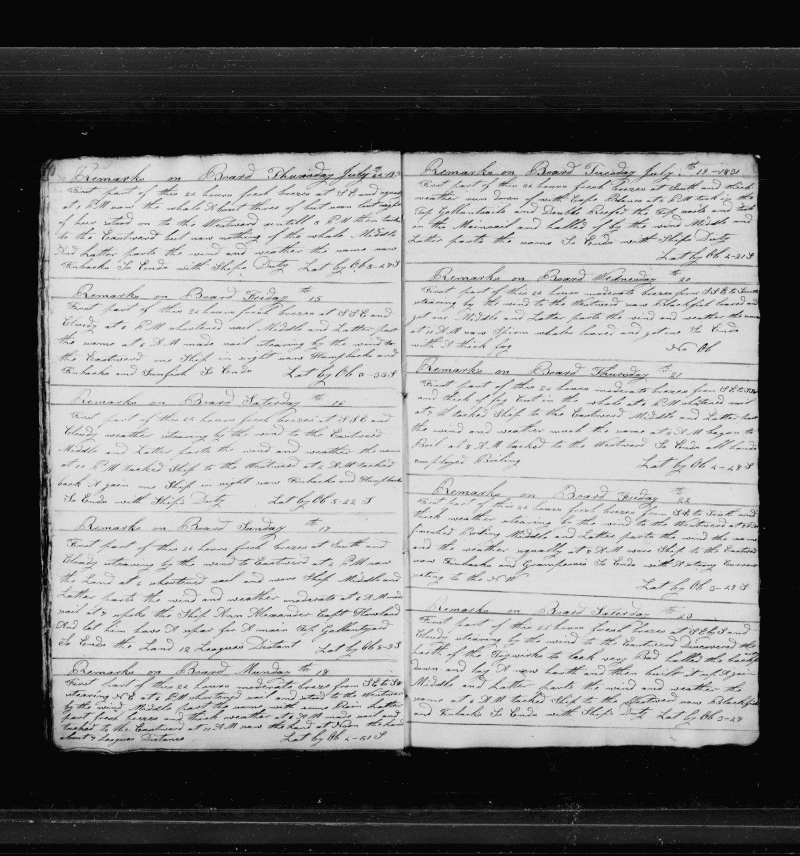 Remarks on Board Thursday July
First part of this 24 hours fresh breezes at S S E and squaly
at 5 P M saw the whale A boat there but soon lost sight
of her stood on to the Westward untill 8 P M then tack
to the Eastward but saw nothing of the whale Middle
And Latter parts the wind and weather the same saw
Finbacks So Ends with Ships Duty Lat by Ob 5-28 S
Remarks on Board Friday th 15
First part of this 24 hours fresh breezes at S S E and
Cloudy at 6 P M shortened sail Middle and Latter part
the same at 6 A M made sail stearing by the wind to
the Eastward one Ship in sight saw Humpbacks and
Finbacks and Sunfish So Ends Lat by Ob 5-33 S
Remarks on Board Saturday th 16
First part of this 24 hours fresh breezes at S S E and
Cloudy weather stearing by the wind to the Eastward
Middle and Latter parts the wind and weather the same
at 10 P M tacked Ship to the Westward at 2 A M tacked
back A gain one Ship in sight saw Finbacks and Humpbacks
So Ends with Ships Duty Lat by Ob 5-22 S
Remarks on Board Sunday th 17
First part of this 24 hours fresh breezes at South and
Cloudy stearing by the wind to Eastward at 2 P M saw
the Land at 6 shortened sail and wore Ship Middle and
Latter parts the wind and weather moderate at 6 A M made
sail at 7 spoke the Ship Ann Alexander Capt Howland
And let him have A spar for A main Top Gallantyard
So Ends the Land 12 Leagues Distant Lat by Ob 5-9 S
Remarks on Board Munday th 18
First part of this 24 hours moderate breezes from S E to
stearing N E at 6 P M shortened sail and stood to the Westward
by the wind Middle part the same with some Rain Latter
part fresh breezes and thick weather at 6 A M made sail and
tacked to the Eastward at 11 A M saw the Land at Noon the land
about 7 Leagues Distance Lat by Ob 4-51 S
Remarks on Board Tuesday July th 19-1831
First part of this 24 hours fresh breezes at South and thick
weather run down off with Cape at 6 P M took in the
Top Gallantsails and Double Reefd the Top sails and
in the Mainsail and halled by the wind Middle and
Latter parts the same So Ends with Ships Duty
Lat by Ob 4-21 S
Remarks on Board Wednesday th 20
First part of this 24 hours moderate breezes from S S E to South
stearing by the wind to the Westward saw Blackfish lowered and
got one Middle and Latter parts the wind and weather the same
at 10 A M saw Sperm whales lowered and got one So Ends
with A thick fog No Ob
Remarks on Board Thursday th 21
First part of this 24 hours moderate breezes from S E to
and thick of fog Cut in the whale at 6 P M shortened sail
at 8 tacked Ship to the Eastward Middle and Latter part
the wind and weather much the same at 2 A M began to
Boil at 8 A M tacked to the Westward So Ends all hands
employed Boiling Lat by Ob 4-28 S
Remarks on Board Friday th 22
First part of this 24 hours fresh breezes from S E to South and
thick weather stearing by the wind to the Westward
finished Boiling Middle and Latter parts the wind the same
and the weather squaly at 8 A M wore Ship to the Eastward
saw Finbacks and Grampuses So Ends with A strong Current
seting to the N W
Lat by Ob 3-28 S
Remarks on Board Saterday th 23
First part of this 24 hours fresh breezes at S E to S and
Cloudy stearing by the wind to the Eastward Discovered the
parth of the Tryworks to leak very Bad halled the back
down and lay A new harth and then built it up A gain
Middle and Latter parts the wind and weather the
same at 6 A M tacked Ship to the Westward saw Blackfish
and Finbacks So Ends with Ships Duty Lat by Ob 3-27